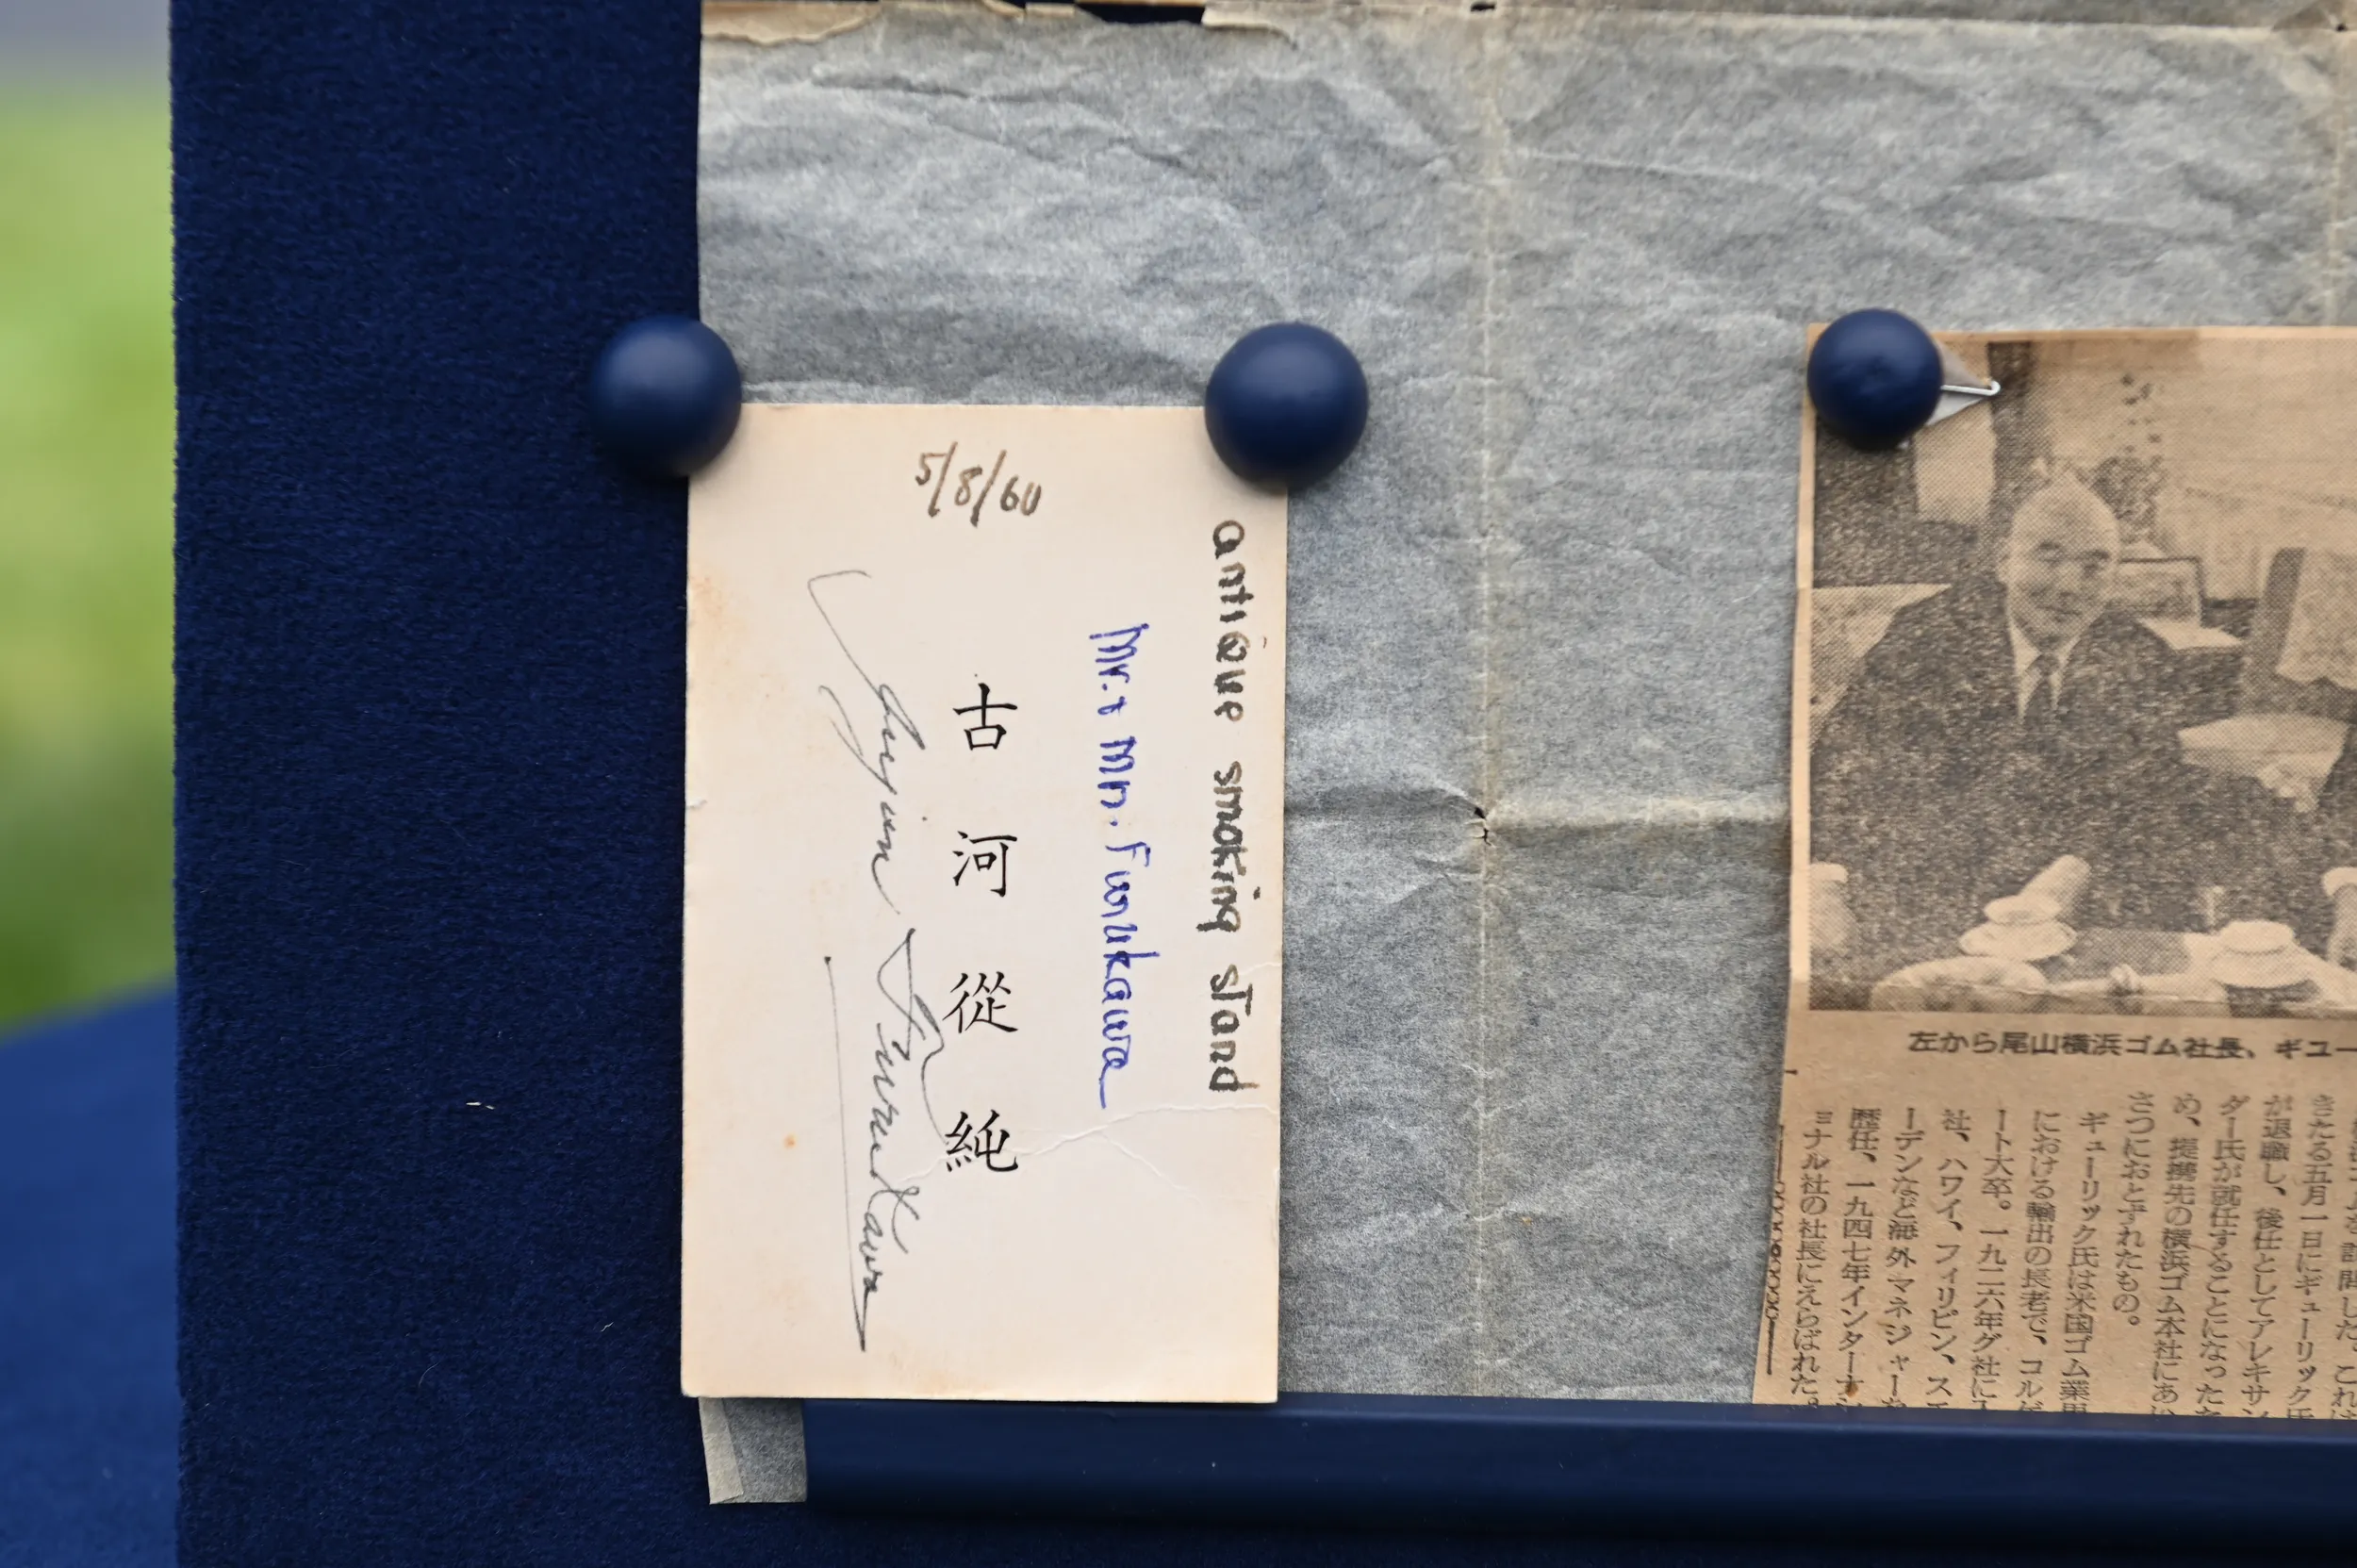 5/8/60
antique smoking stand
Mr. & Mrs. Furukawa
古河從純
Jujun Furukawa
左から尾山横浜ゴム社長、ギユー
訪問した。これ
きたる五月一日にギューリック氏
が退職し、後任としてアレキサン
ダー氏が就任することになったた
め、提携先の横浜ゴム本社にあい
さつにおとずれたもの。
ギューリック氏は米国ゴム業界
における輸出の長老で、コルゲ
ート大卒。一九二六年グ社に入
社、ハワイ、フィリピン、スエ
ーデンなど海外マネジャーを
歴任、一九四七年インターナシ
ョナル社の社長にえらばれた。